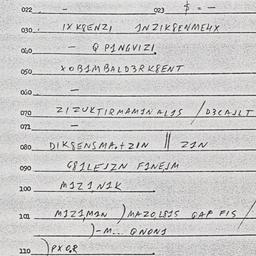 022 - 023 $ = -
030. IX K8ENZI 1NZIK8ENMEHX
040 - Q P1NGVIZI.
050 XOB1MBALD3RK8ENT
060 -
070 ZIZUKTIRMAM1NAL1S / D3CAJLT
071 -
080 DIK8ENSMA,+ZIN || Z1N
090 G81LEJZN F1NEJM
100 M1Z1N1K
101 M1Z1,M1N ) MAZOL81S GAP FIS /
)-M... QNON1
110 ) PX O,R